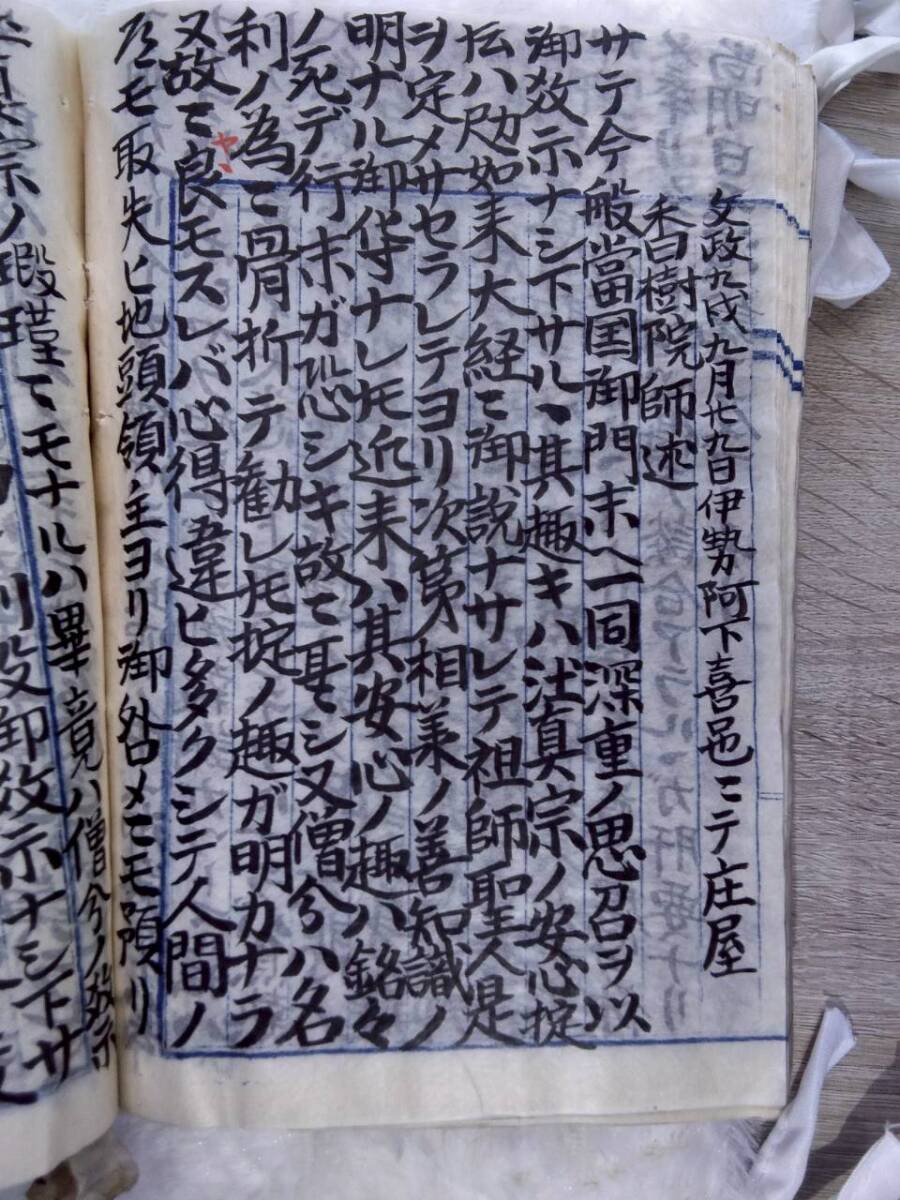 文政九戌九月廿九日伊勢阿下喜邑ニテ庄屋
香樹院師述
サテ今般當国御門末ヘ一同深重ノ思召ヲ以
御教示ナシ下サル丶其趣キハ浄真宗ノ安心掟
ハ如来大経ニ御説ナサレテ祖師聖人是
ヲ定メサセラレテヨリ次第相義ノ善知識ノ
明ナル御ナレ𪜈近来ハ其安心ノ趣ハ銘々
ノ死デ行ホガ恐シキ故ニシ又僧分ハ名
利ノ為ニ骨折テ勧レ𪜈掟ノ趣ガ明カナラ
ヤヽ
又故ニ良モスレバ心得違ヒタクシテ人間ノ
モ取失ヒ地頭領主ヨリ御咎メニモ預リ
瑕瑾ニモナルハ畢竟ハ僧分ノ教示
御教示ナシ下サ